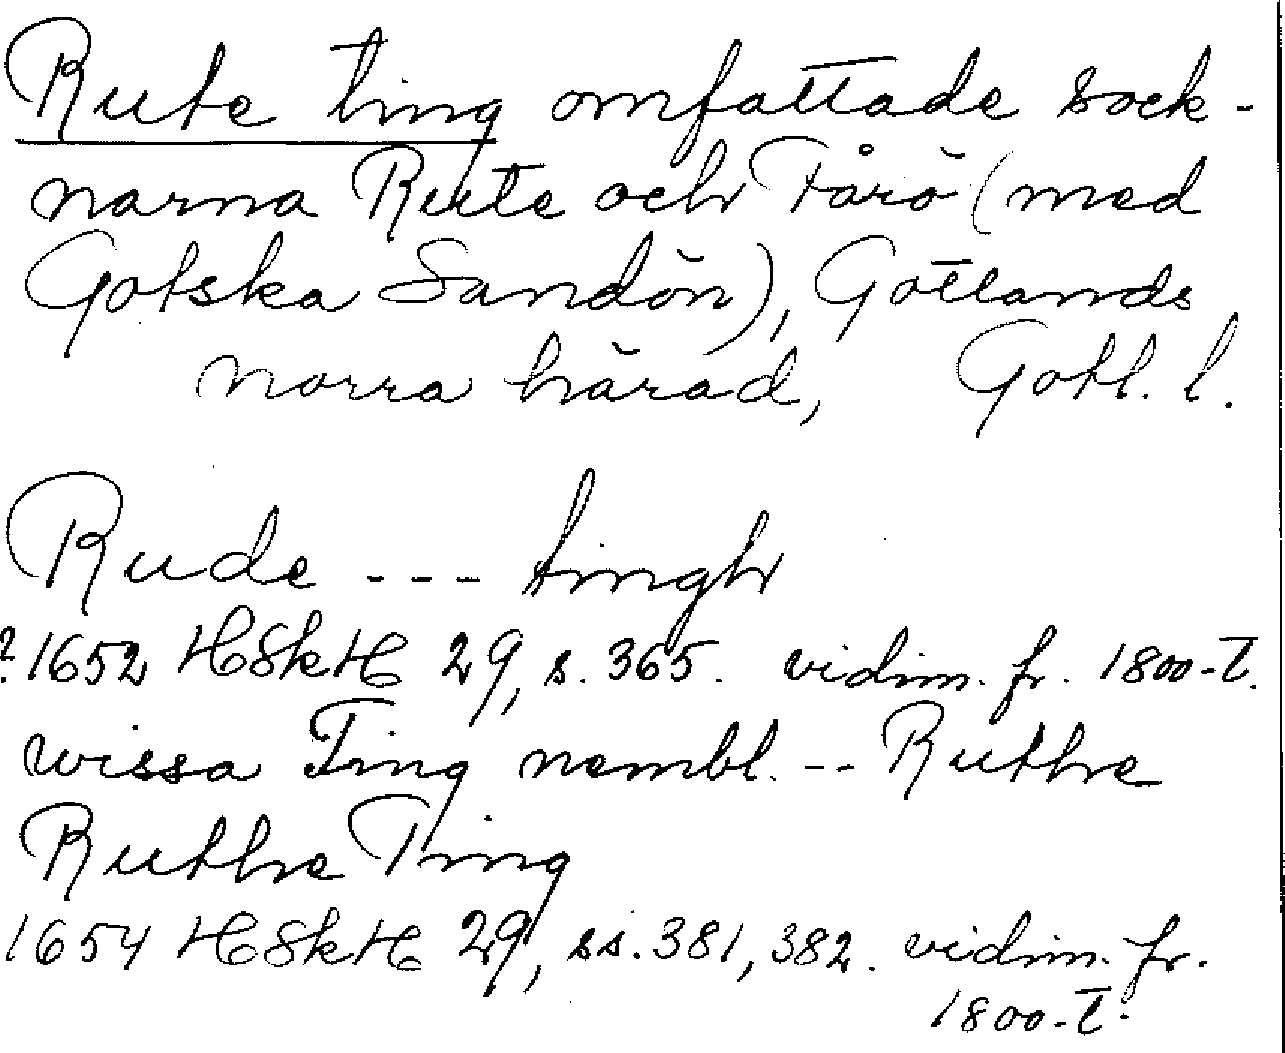 Rute ting omfattade sock-
narna Rute och Fårö (med
Gotska Sandön), Gotlands
norra härad, Gotl. l.
Rude --- tingh
? 1652 HSkH 29, s. 365. vidim. fr. 1800-t.
wissa Ting nembl. -- Ruthe
Ruthe Ting
1654 HSkH 29, ss. 381, 382. vidim. fr.
1800-t.